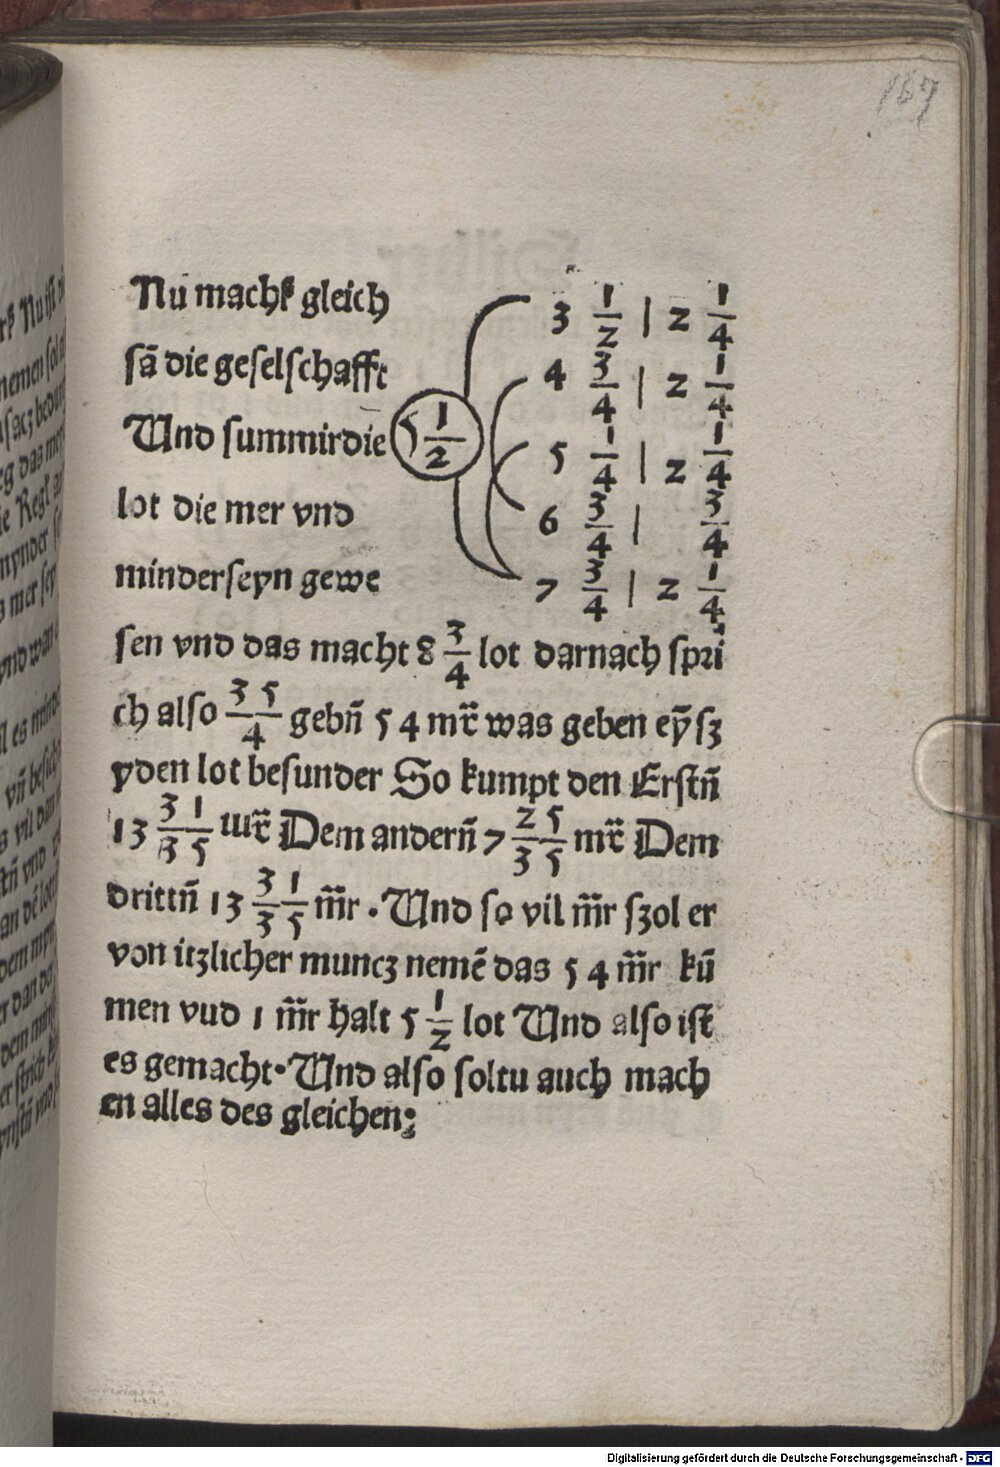 167
Nu machſ gleich
ſā die geſelſchafft
Vnd ſummirdie
lot die mer vnd
minderſeyn gewe
5 1/2
3 1/2 | 2 1/4
4 3/4 | 2 1/4
5 1/4 | 2 1/4
6 3/4 | 3/4
7 3/4 | 2 1/4
ſen vnd das macht 8 3/4 lot darnach ſpri
ch alſo 35/4 gebn̄ 54 mr̄ was geben eȳſz
yden lot beſunder So kumpt den Erſtn̄
13 3/3 1/5 mr̄ Dem andern̄ 7 2/3 5/5 mr̄ Dem
drittn̄ 13 3/3 1/5 m̄r . Vnd ſo vil m̄r ſzol er
von itzlicher muncz nemē das 54 m̄r kū
men vud 1 m̄r halt 5 1/2 lot Vnd alſo iſt
es gemacht·Vnd alſo ſoltu auch mach
en alles des gleichen;
Digitalisierung gefördert durch die Deutsche Forschungsgemeinschaft - DFG